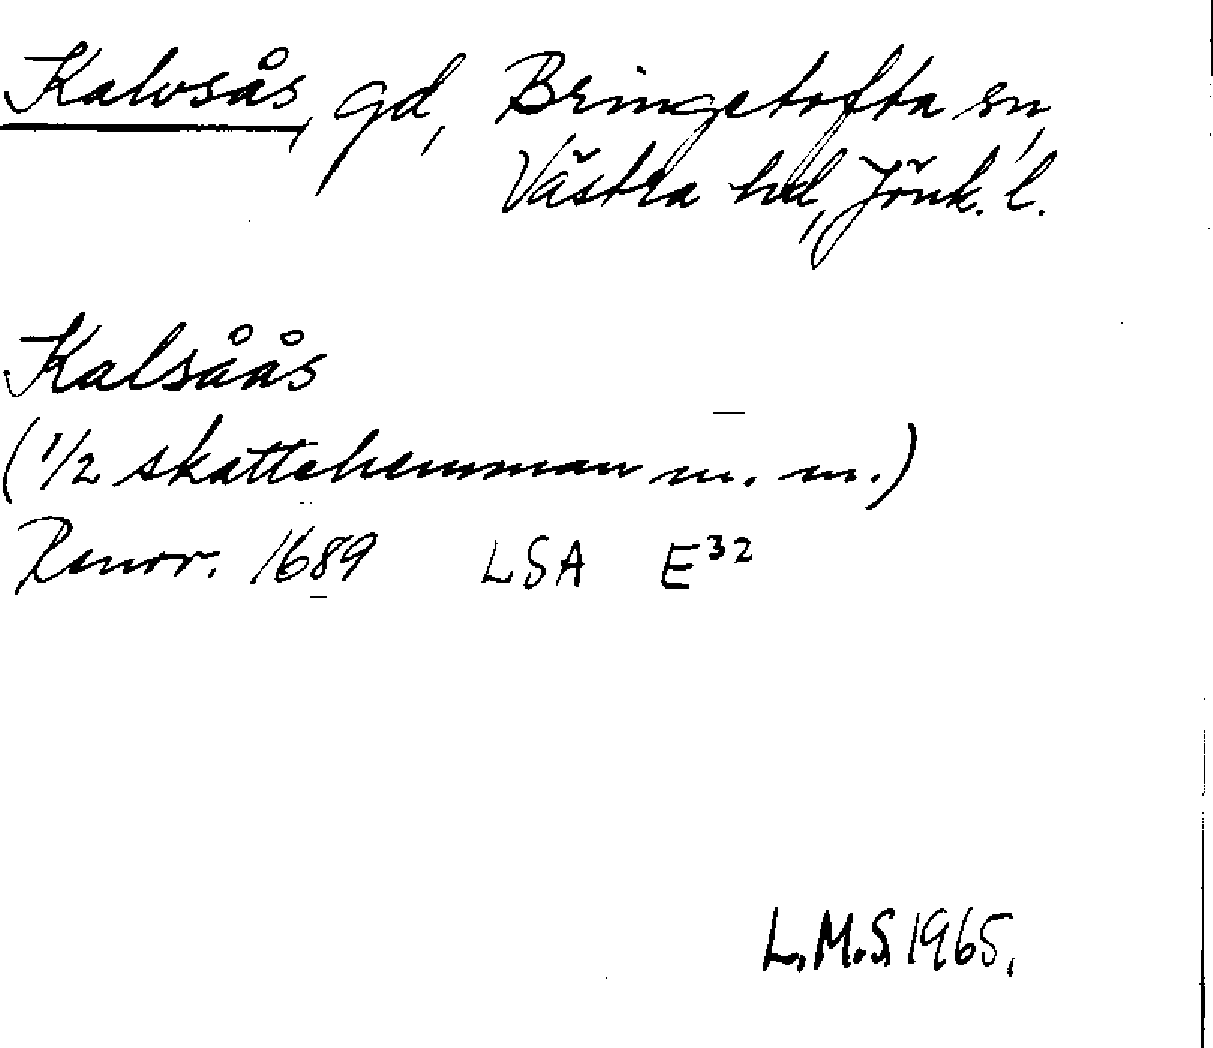 Kalvsås, gd, Bringetofta sn,
Västra hd, Jönk. l.
Kalsåås
(1/2 skattehemman m. m.)
Renov. 1689 LSA E³²
L.M.S. 1965.